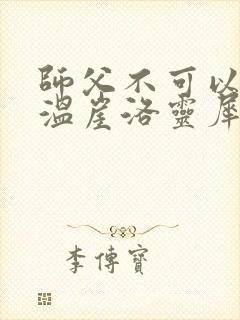 師父不可以
溫崖洛靈犀
李傳寶